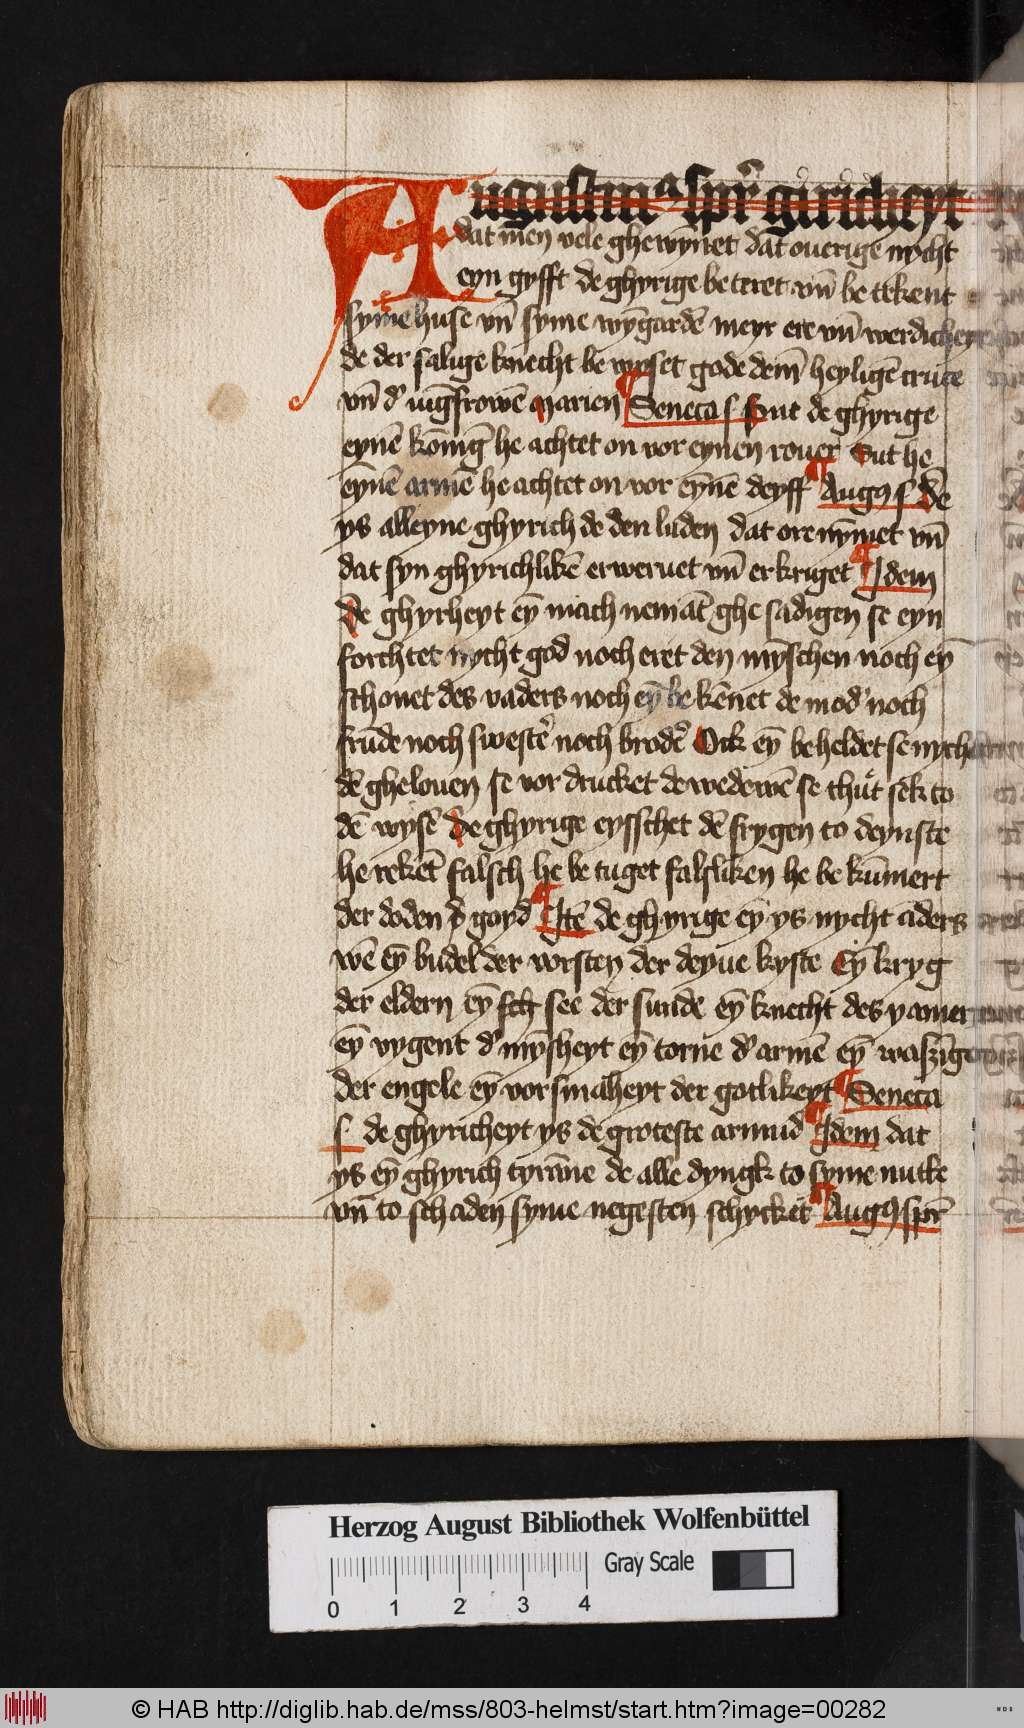 Augustinꝰ spr̄ giricheyt
dat men vele ghewynet dat ouerige nycht
eyn gyfft de ghyrige be teret vn̄ be tekent
syme huse vn̄ syme wȳgardē meyr ere vn̄ werdicheyt
de der salige knecht be wyset gode dem̄ heyligē cruce
vn̄ d' iūgfrowē marien Seneca s Sut de ghyrige
eynē kōnig he achtet on vor eynen rouer Sut he
eȳnē armē he achtet on vor eȳnē deyff Augꝰ s De
ys alleyne ghyrich de den luden dat ore nȳmet vn̄
dat syn ghyrichlikē erweruet vn̄ erkriget Idem
De ghyrheyt eȳ mach nemāt ghe sadigen se eyn
forchtet nycht god noch eret den mȳschen noch eȳ
schonet des vaders noch eȳ be kēnet de mod' noch
frūde noch swestē noch brodē Ock eȳ beheldet se nycht
dē ghelouen se vor drucket de wedewē se thut sek to
dē wysē De ghyrige eysschet dē frygen to deynste
he rekēt falsch he be tuget falsliken he be kūmert
der doden goyd Itē de ghyrige eȳ ys nycht āders
wē eȳ budel der vorsten der deyue kyste Eȳ kryg
der eldern eȳ see der sunde eȳ knecht des yamer
eȳ vygent d' mȳsheyt eȳ torne d' armē eȳ
der engele eȳ vorsmaheyt der gotlikeyt Seneca
s de ghyricheyt ys de groteste armud Idem dat
ys eȳ ghyrich tyrāne de alle dyngk to syme nutke
vn̄ to schaden syme negesten schycket Augꝰ spr̄
Herzog August Bibliothek Wolfenbüttel
Gray Scale
0 1 2 3 4
© HAB http://diglib.hab.de/mss/803-helmst/start.htm?image=00282